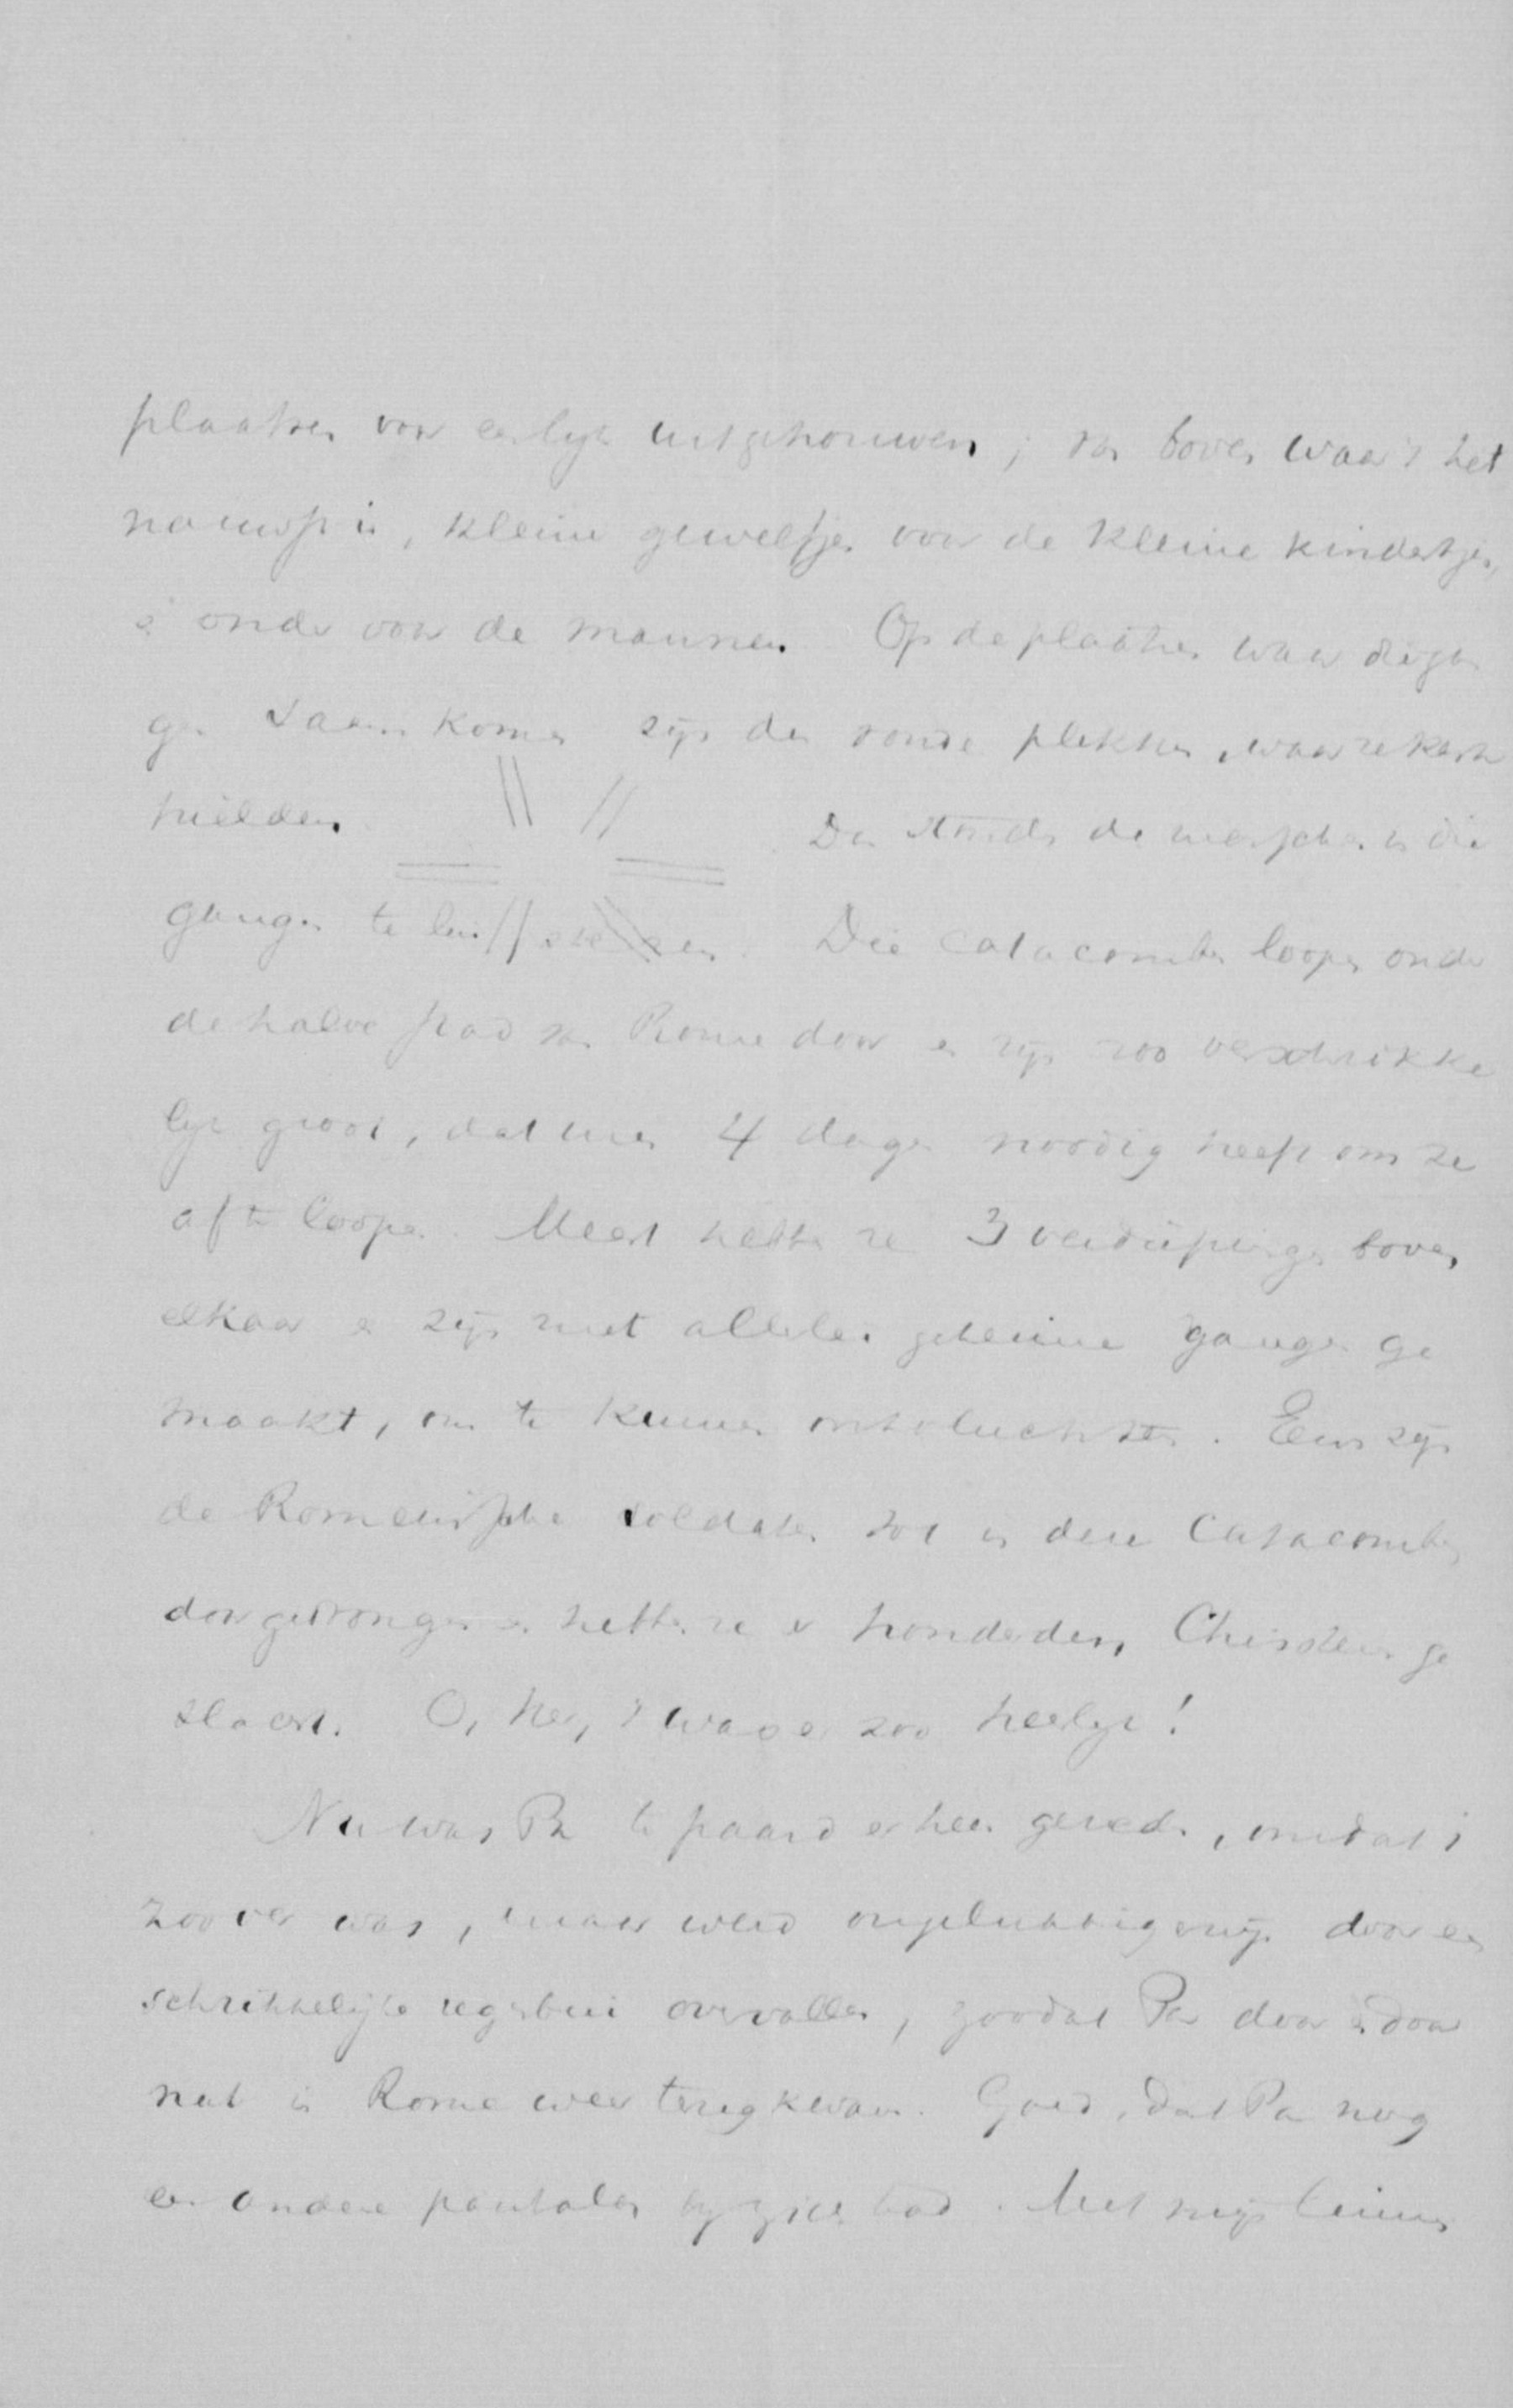 plaatsen voor een lijk uitgehouwen; van boven waar 't het
nauwst is, kleine gewelfjes voor de kleine kindertjes,
en onder voor de mannen. Op de plaatsen waar die gan
gen samen komen zijn der ronde plekken, waar ze kerk
hielden. Dan stonden de menschen in die
gangen te luisteren. Die catacomben loopen onder
de halve stad van Rome door en zijn zoo verschrikke
lijk groot, dat men 4 dagen noodig heeft om ze
af te loopen. Meest hebben ze 3 verdiepingen boven
elkaar en zijn met allerlei geheime gangen ge
maakt, om te kunnen ontvluchten. Eens zijn
de Romeinsche soldaten tot in deze Catacomben
doorgedrongen en hebben ze er honderden Christenen ge
slacht. O, hé, 't was er zoo heerlijk!
Nu was Pa te paard er heen gereden, omdat 't
zoo ver was, maar werd ongelukkigerwijs door een
schrikkelijke regenbui overvallen, zoodat Pa door en door
nat in Rome weer terugkwam. Goed, dat Pa nog
een andere pantalon bij zich had. Met mijn linnen